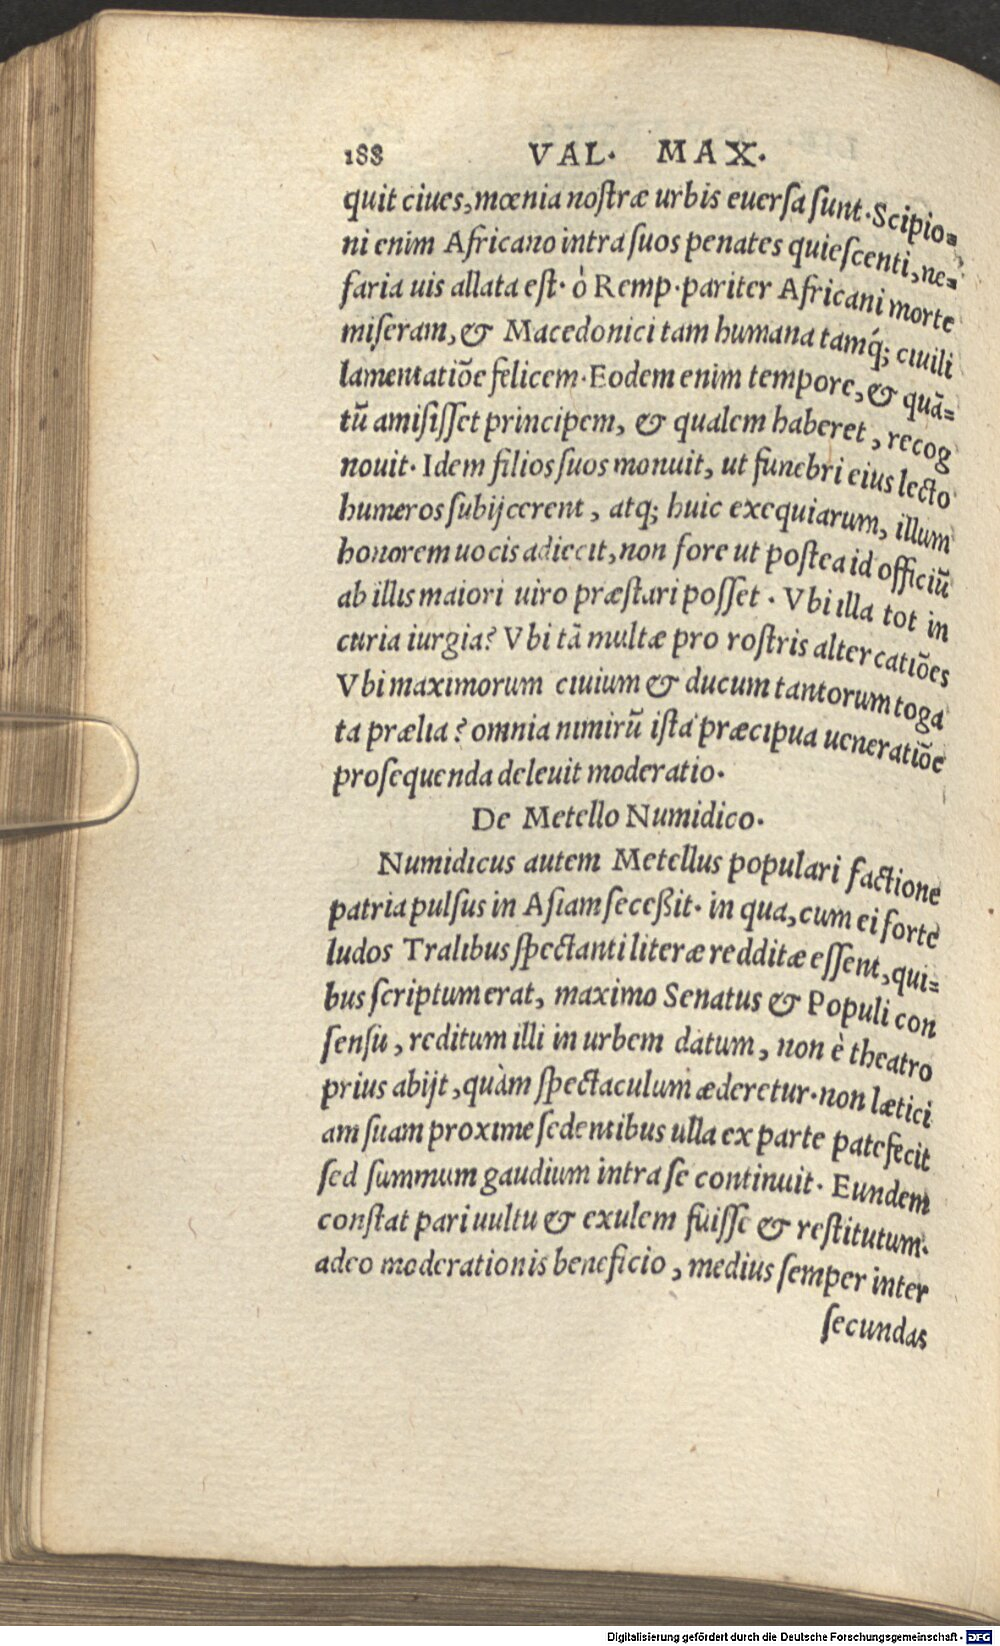 188 VAL. MAX.
quit ciues, mœnia noſtræ urbis euerſa ſunt. Scipio=
ni enim Africano intra ſuos penates quieſcenti, ne=
faria uis allata eſt. ò Remp. pariter Africani morte
miſeram, & Macedonici tam humana tamq́; ciuili
lamentatiõe felicem. Eodem enim tempore, & quã=
tũ amiſiſſet principem, & qualem haberet, recog
nouit. Idem filios ſuos monuit, ut funebri eius lecto
humeros ſubijcerent, atq; huic exequiarum, illum
honorem uocis adiecit, non fore ut poſtea id officiũ
ab illis maiori uiro præſtari poſſet. Vbi illa tot in
curia iurgia? Vbi tã multæ pro roſtris altercatiões
Vbi maximorum ciuium & ducum tantorum toga
ta prælia? omnia nimirũ iſta præcipua ueneratiõe
proſequenda deleuit moderatio.
De Metello Numidico.
Numidicus autem Metellus populari factione
patria pulſus in Aſiam ſeceßit. in qua, cum ei forte
ludos Tralibus ſpectanti literæ redditæ eſſent, qui=
bus ſcriptum erat, maximo Senatus & Populi con
ſenſu, reditum illi in urbem datum, non è theatro
prius abijt, quàm ſpectaculum æderetur. non lætici
am ſuam proxime ſedentibus ulla ex parte patefecit
ſed ſummum gaudium intra ſe continuit. Eundem
conſtat pari uultu & exulem fuiſſe & reſtitutum.
adeo moderationis beneficio, medius ſemper inter
ſecundas
Digitalisierung gefördert durch die Deutsche Forschungsgemeinschaft - DFG